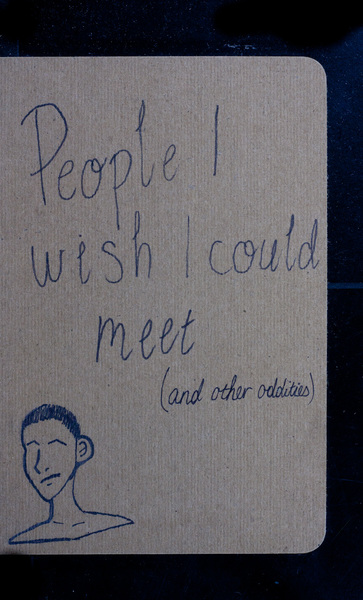 People I
wish I could
meet
(and other oddities)